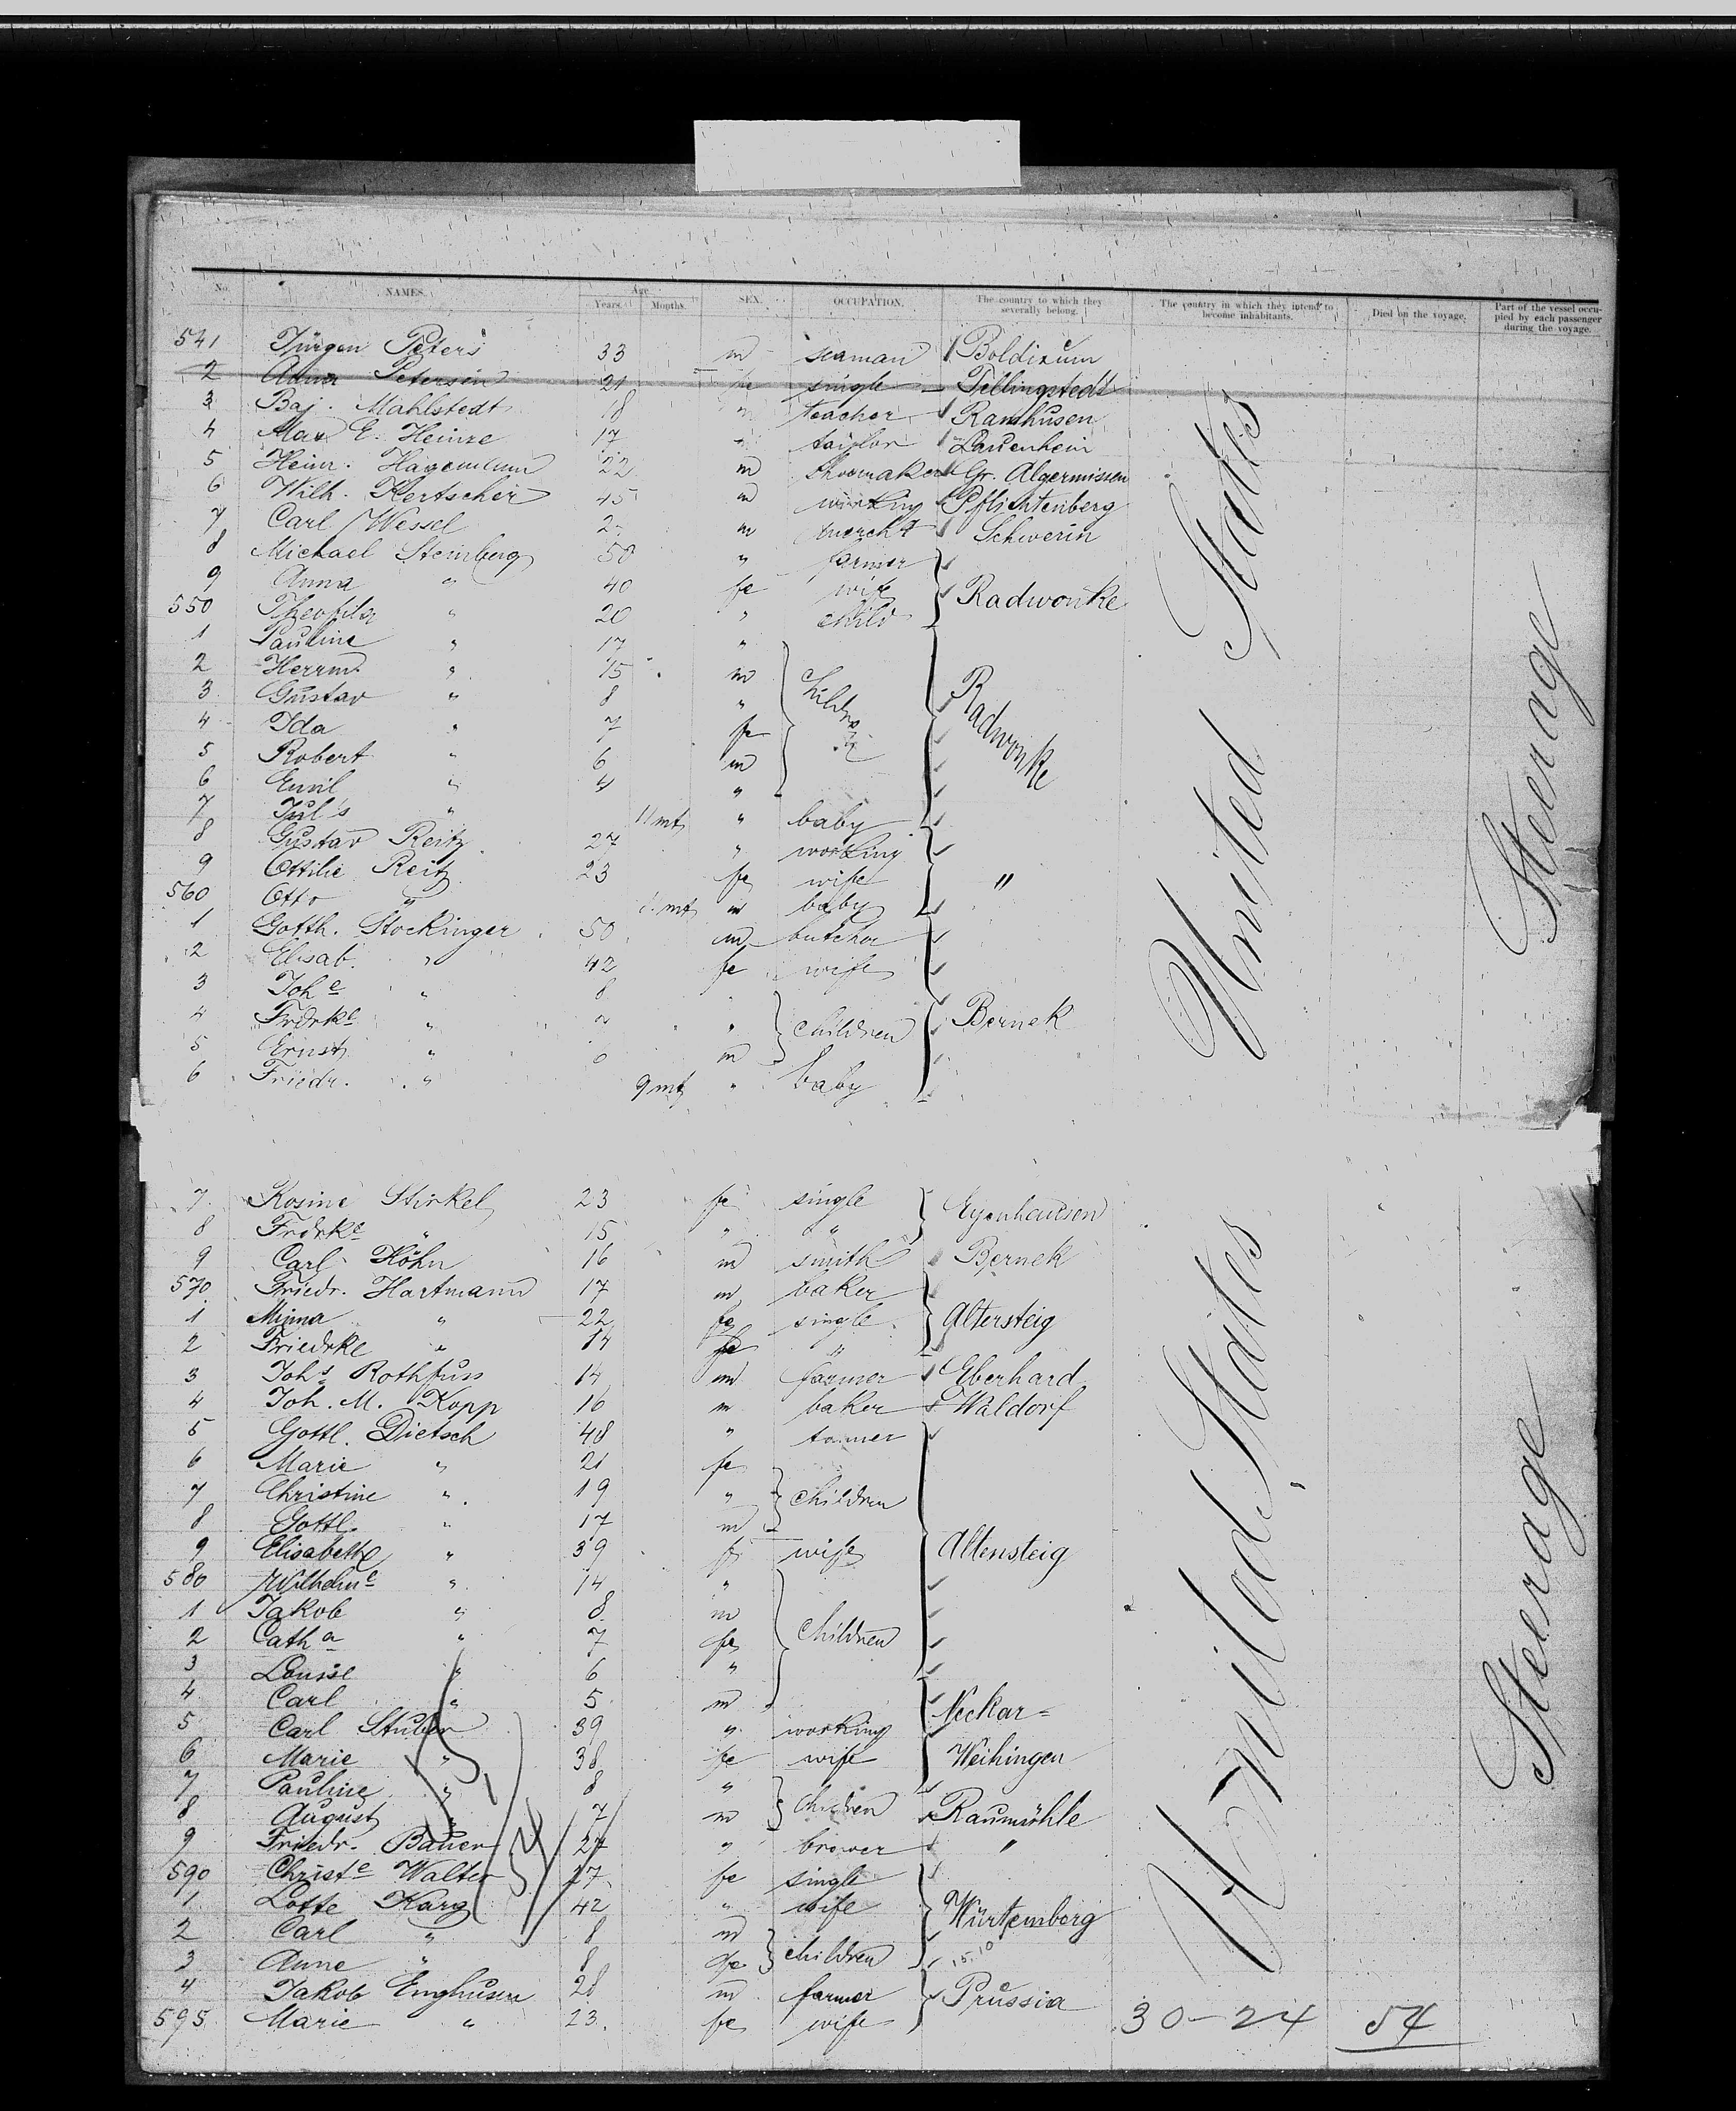 No. NAMES. Age Years. Months. SEX. OCCUPATION. The country to which they severally belong. The country in which they intend to become inhabitants. Died on the voyage. Part of the vessel occupied by each passenger during the voyage.
541 Jürgen Peters 33 m seaman Boldixum
2 Petersen 21 fe single Tellingstedt
3 Baj. Mahlstedt 18 teacher Ramhusen
4 Max E. Heinze 17 taylor Lauenhein
5 Heinr. 22 m shoemaker Gr. Algermissen
6 Wilh. Kertscher 45 m working Pflichtenberg
7 Carl Wessel m mercht Schwerin
8 Michael Steinberg 50 " farmer
9 Anna " 40 fe wife Radwonke
550 Theofila " 20 " child
1 Pauline " 17 "
2 Herrm. " 15 m
3 Gustav " 8 " children Radwonke
4 Ida " 7 fe
5 Robert " 6 m
6 Emil " 4 "
7 Jul's " 11 mt " baby
8 Gustav Reitz 27 " working
9 Ottilie Reitz 23 fe wife "
560 Otto " mt m baby
1 Gotth. Stockinger 50 m butcher
2 Elisab. " 42 fe wife
3 Johe " 8
4 Frdrke " " children Bernek
5 Ernst " m
6 Friedr. " 9 mt " baby
United States
Steerage
7 Rosine Stirkel 23 fe single Egenhausen
8 Frdrke " 15 " "
9 Carl Höhn 16 m smith Bernek
570 Friedr. Hartmann 17 m baker
1 Minna " 22 fe single Altersteig
2 Friedrke " 14 fe "
3 Johs Rothfuss 14 m farmer Eberhard
4 Joh. M. Kopp 16 m baker Waldorf
5 Gottl. Dietsch 48 " farmer
6 Marie " 21 fe
7 Christine " 19 " children
8 Gottl. " 17 m
9 Elisabeth " 39 fe wife Altensteig
580 Wilhelme " 14 "
1 Jakob " 8 m
2 Catha " 7 fe children
3 Louise " 6 "
4 Carl " 5 m
5 Carl Stuber 39 " working Neckar=
6 Marie " 38 fe wife Weihingen
7 Pauline " 8 "
8 August " 7 m children Raumühle
9 Friedr. Bauer 27 " brower "
590 Christe Walter 27 fe single
1 Lotte Karg 42 " wife Würtemberg
2 Carl " 8 m
3 Anne " 8 fe children
4 Jakob Enghusen 28 m farmer Prussia
595 Marie " 23. fe wife
United States
Steerage
30-24 54